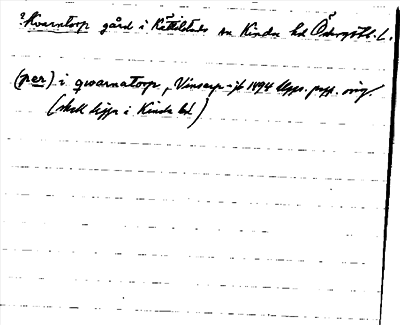 ? Kvarntorp gård i Kättilstads sn Kinda hd Östergötl. L.
(per) i qwarnatorp, Vinserp-jb 1494 Upps. papp. orig.
(skall ligga i Kinda hd)